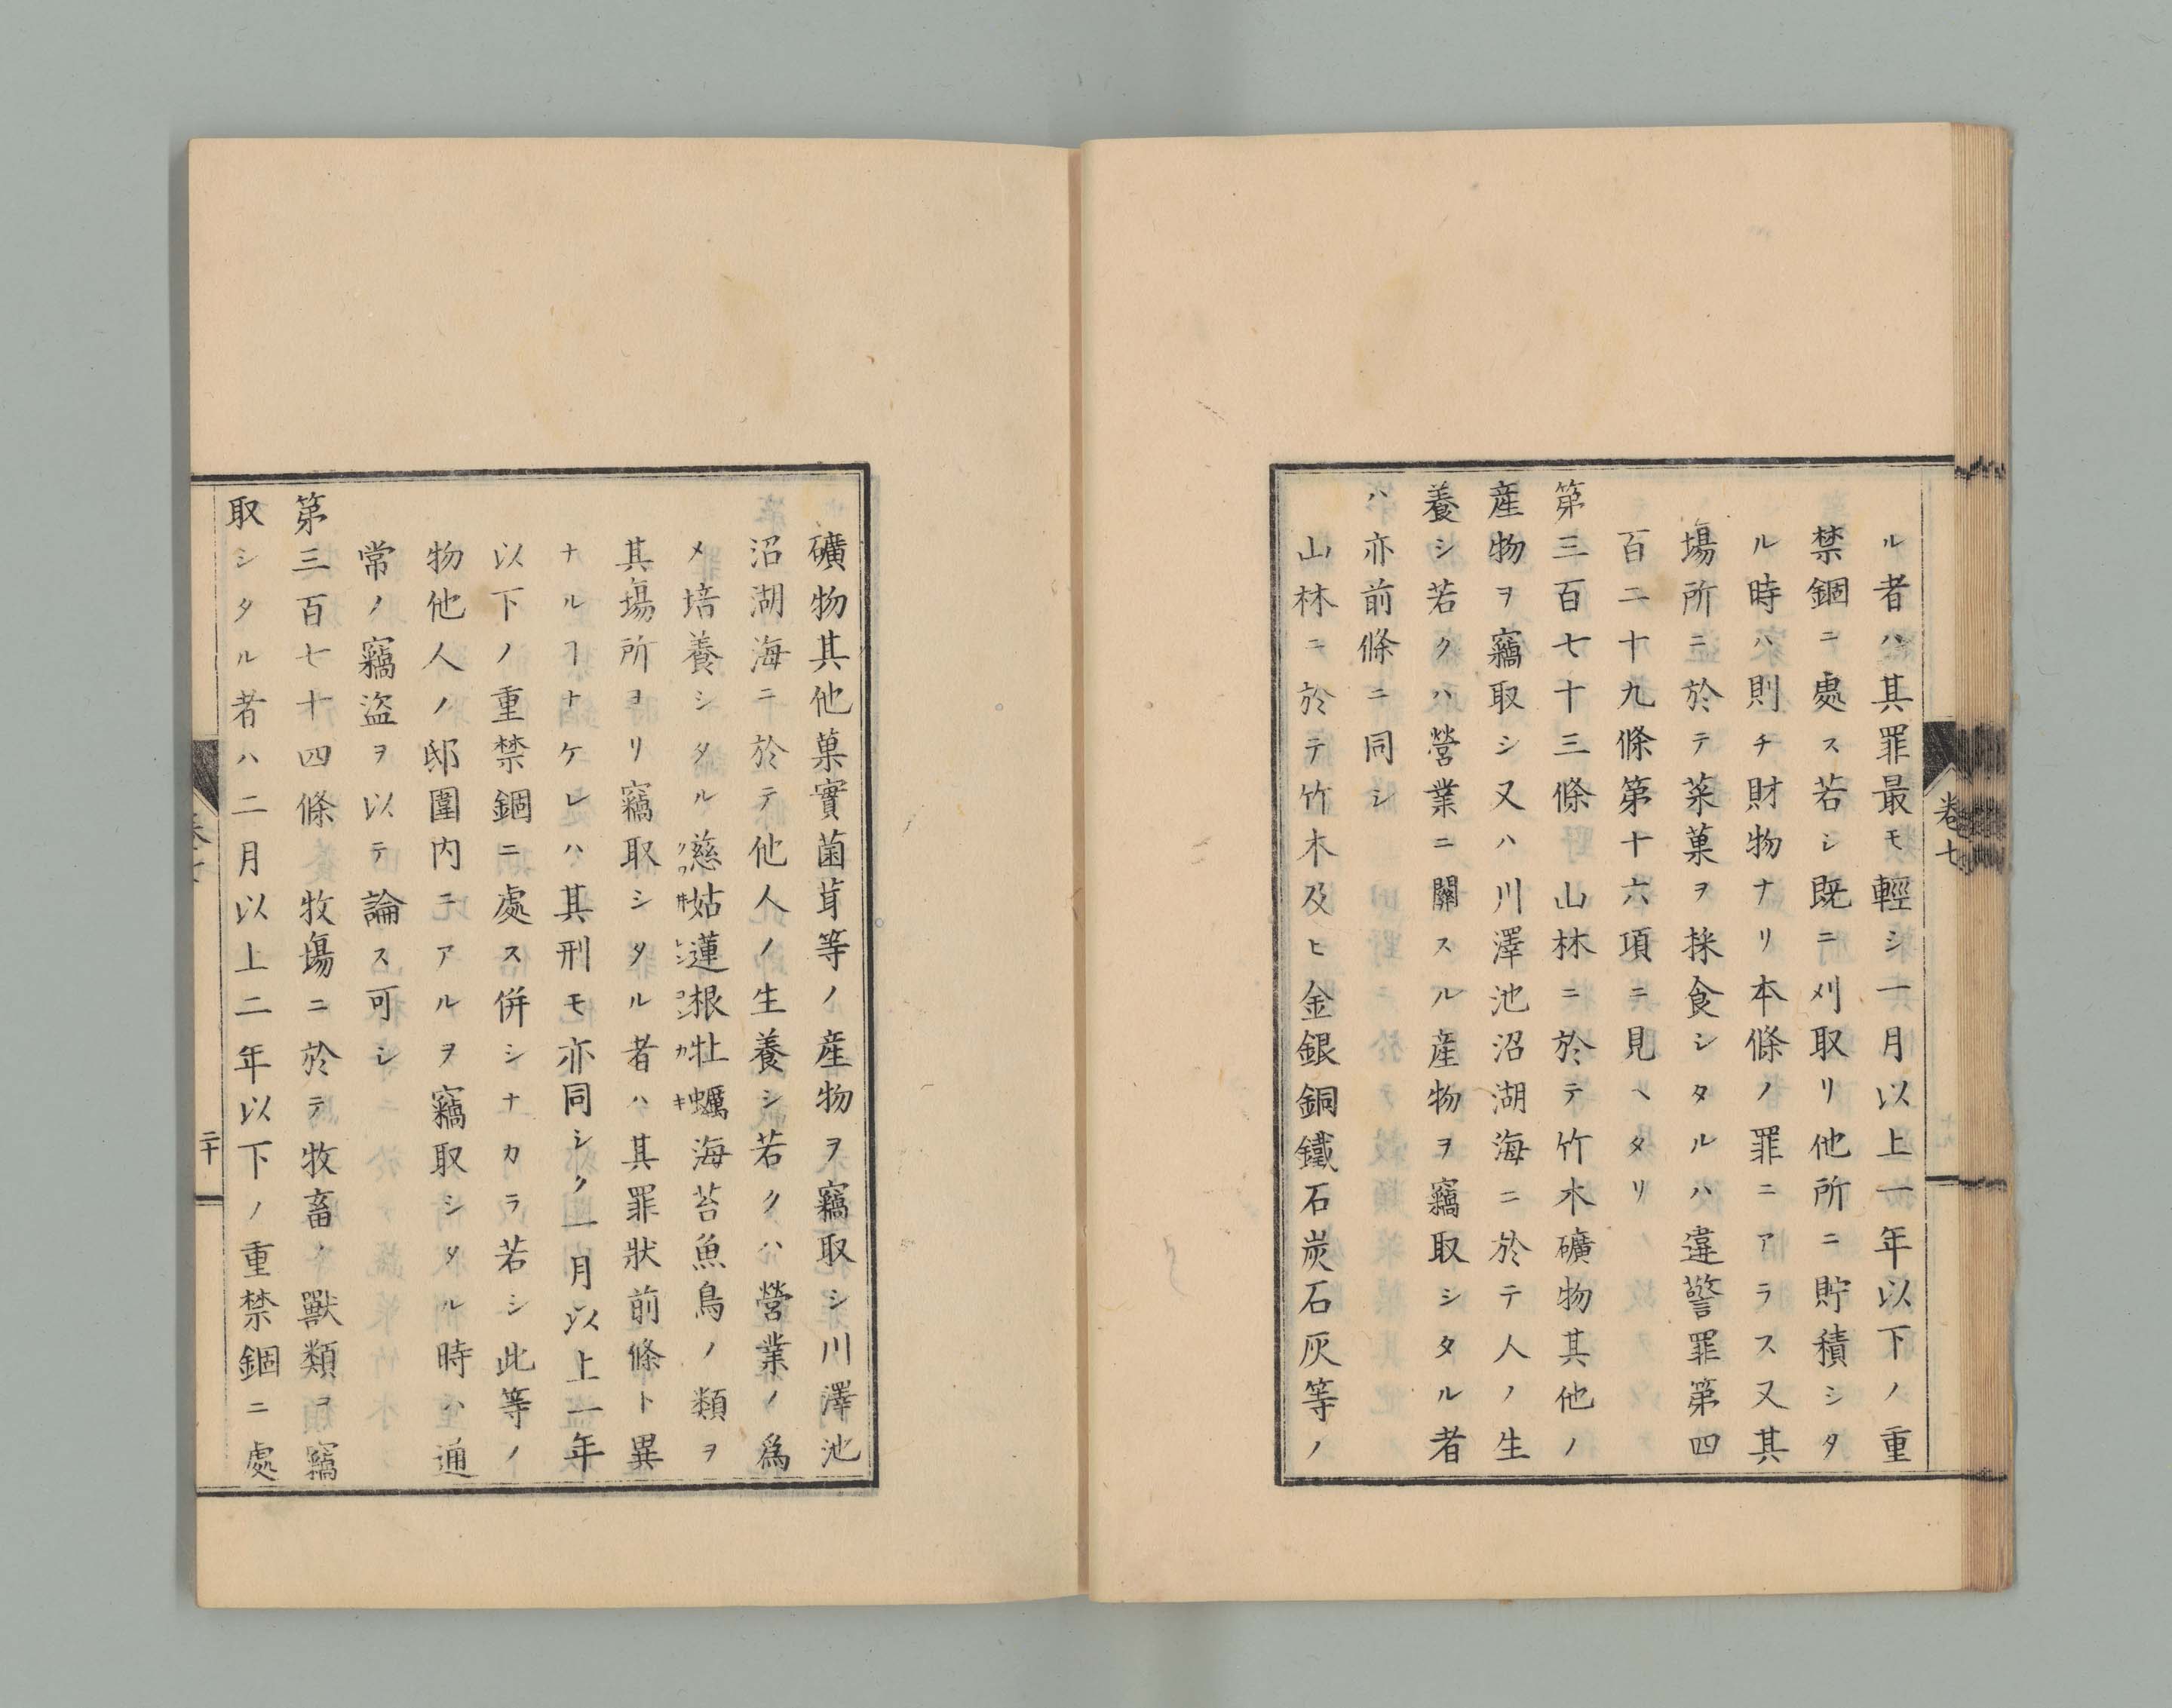 ル者ハ其罪最モ輕シ一月以上一年以下ノ重
禁錮ニ處ス若シ既ニ刈取リ他所ニ貯積シタ
ル時ハ則チ財物ナリ本條ノ罪ニアラス又其
塲所ニ於テ菜菓ヲ採食シタルハ違警罪第四
百二十九條第十六項ニ見ヘタリ
第三百七十三條 山林ニ於テ竹木礦物其他ノ
産物ヲ竊取シ又ハ川澤池沼湖海ニ於テ人ノ生
養シ若クハ營業ニ關スル産物ヲ竊取シタル者
ハ亦前條ニ同シ
山林ニ於テ竹木及ヒ金銀銅鐵石炭石灰等ノ
卷七
礦物其他菓實菌茸等ノ産物ヲ竊取シ川澤池
沼湖海ニ於テ他人ノ生養シ若クハ營業ノ爲
メ培養シタル慈姑蓮根牡蠣海苔魚鳥ノ類ヲ
クワ井 レンコン カキ
其塲所ヨリ竊取シタル者ハ其罪狀前條ト異
ナルヿナケレハ其刑モ亦同シク一月以上一年
以下ノ重禁錮ニ處ス併シナカラ若シ此等ノ
物他人ノ邸圍内ニアルヲ竊取シタル時ハ通
常ノ竊盜ヲ以テ論ス可シ
第三百七十四條 牧塲ニ於テ牧畜ノ獸類ヲ竊
取シタル者ハ二月以上二年以下ノ重禁錮ニ處
卷七
二十